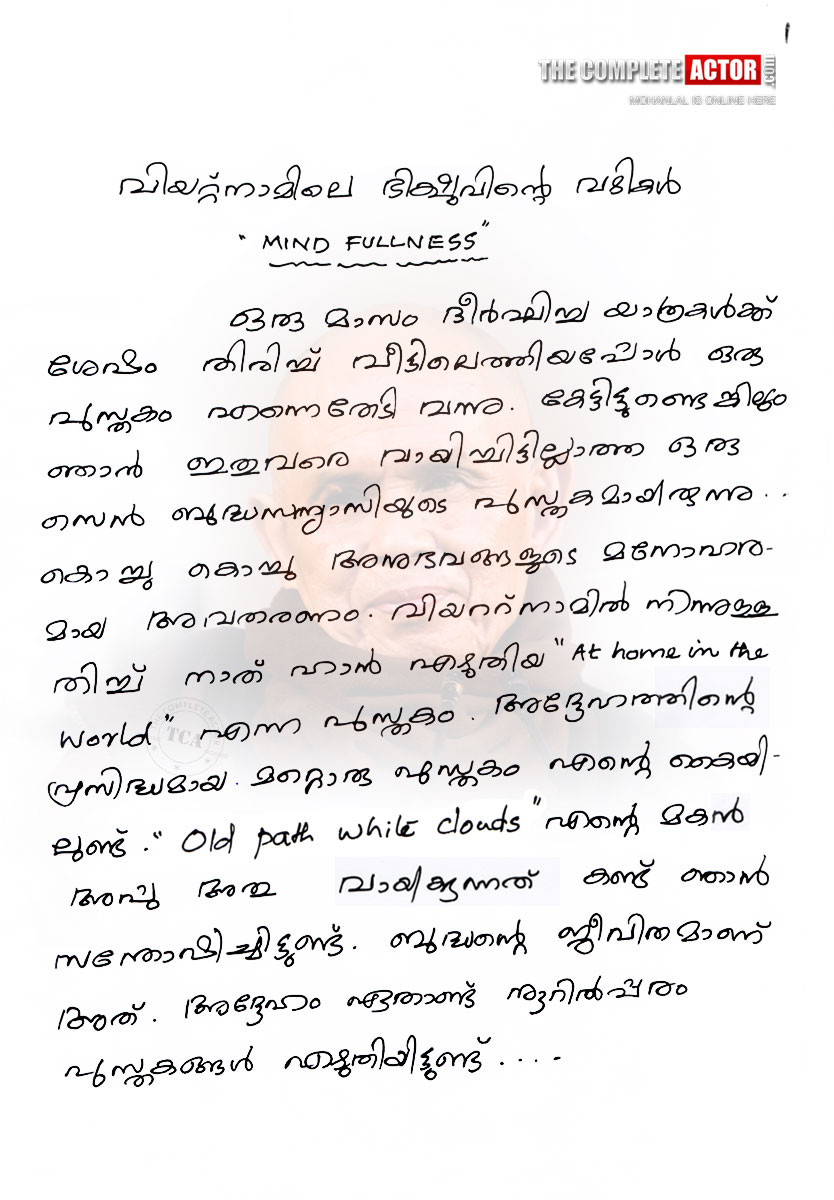 1
THE COMPLETE ACTOR .COM
MOHANLAL IS ONLINE HERE
വിയറ്റ്നാമിലെ ഭിക്ഷുവിന്റെ വഴികൾ
"MIND FULLNESS"
ഒരു മാസം ദീർഘിച്ച യാത്രകൾക്ക്
ശേഷം തിരിച്ച് വീട്ടിലെത്തിയപ്പോൾ ഒരു
പുസ്തകം എന്നെതേടി വന്നു. കേട്ടിട്ടുണ്ടെങ്കിലും
ഞാൻ ഇതുവരെ വായിച്ചിട്ടില്ലാത്ത ഒരു
സെൻ ബുദ്ധസന്ന്യാസിയുടെ പുസ്തകമായിരുന്നു..
കൊച്ചു കൊച്ചു അനുഭവങ്ങളുടെ മനോഹര-
മായ അവതരണം. വിയററ്നാമിൽ നിന്നുള്ള
തിച്ച് നാത് ഹാൻ എഴുതിയ "At home in the
World" എന്ന പുസ്തകം. അദ്ദേഹത്തിന്റെ
പ്രസിദ്ധമായ. മറ്റൊരു പുസ്തകം എന്റെ കൈയി-
ലുണ്ട്. "Old path while clouds" എന്റെ മകൻ
അപ്പു അത് വായിക്കുന്നത് കണ്ട് ഞാൻ
സന്തോഷിച്ചിട്ടുണ്ട്. ബുദ്ധന്റെ ജീവിതമാണ്
അത്. അദ്ദേഹം ഏതാണ്ട് നൂറിൽപ്പരം
പുസ്തകങ്ങൾ എഴുതിയിട്ടുണ്ട്....
TCA